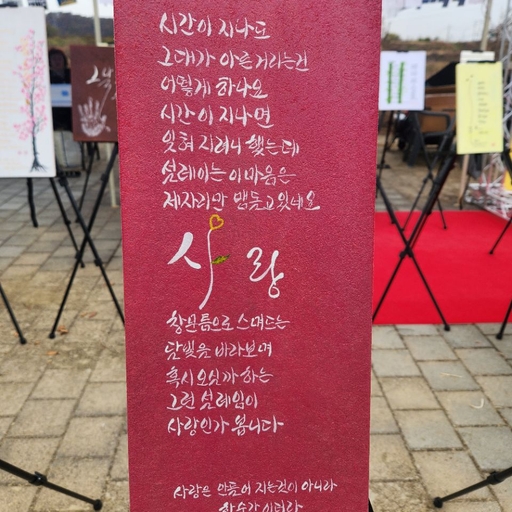 시간이 지나도
그대가 아른거리는건
어떻게 하나요
시간이 지나면
잊혀 지려니 했는데
설레이는 이 마음은
제자리만 맴돌고 있네요
사랑
창문틈으로 스며드는
달빛을 바라보며
혹시 오실까 하는
그런 설레임이
사랑인가 봅니다
사랑은 만들어 지는것이 아니라